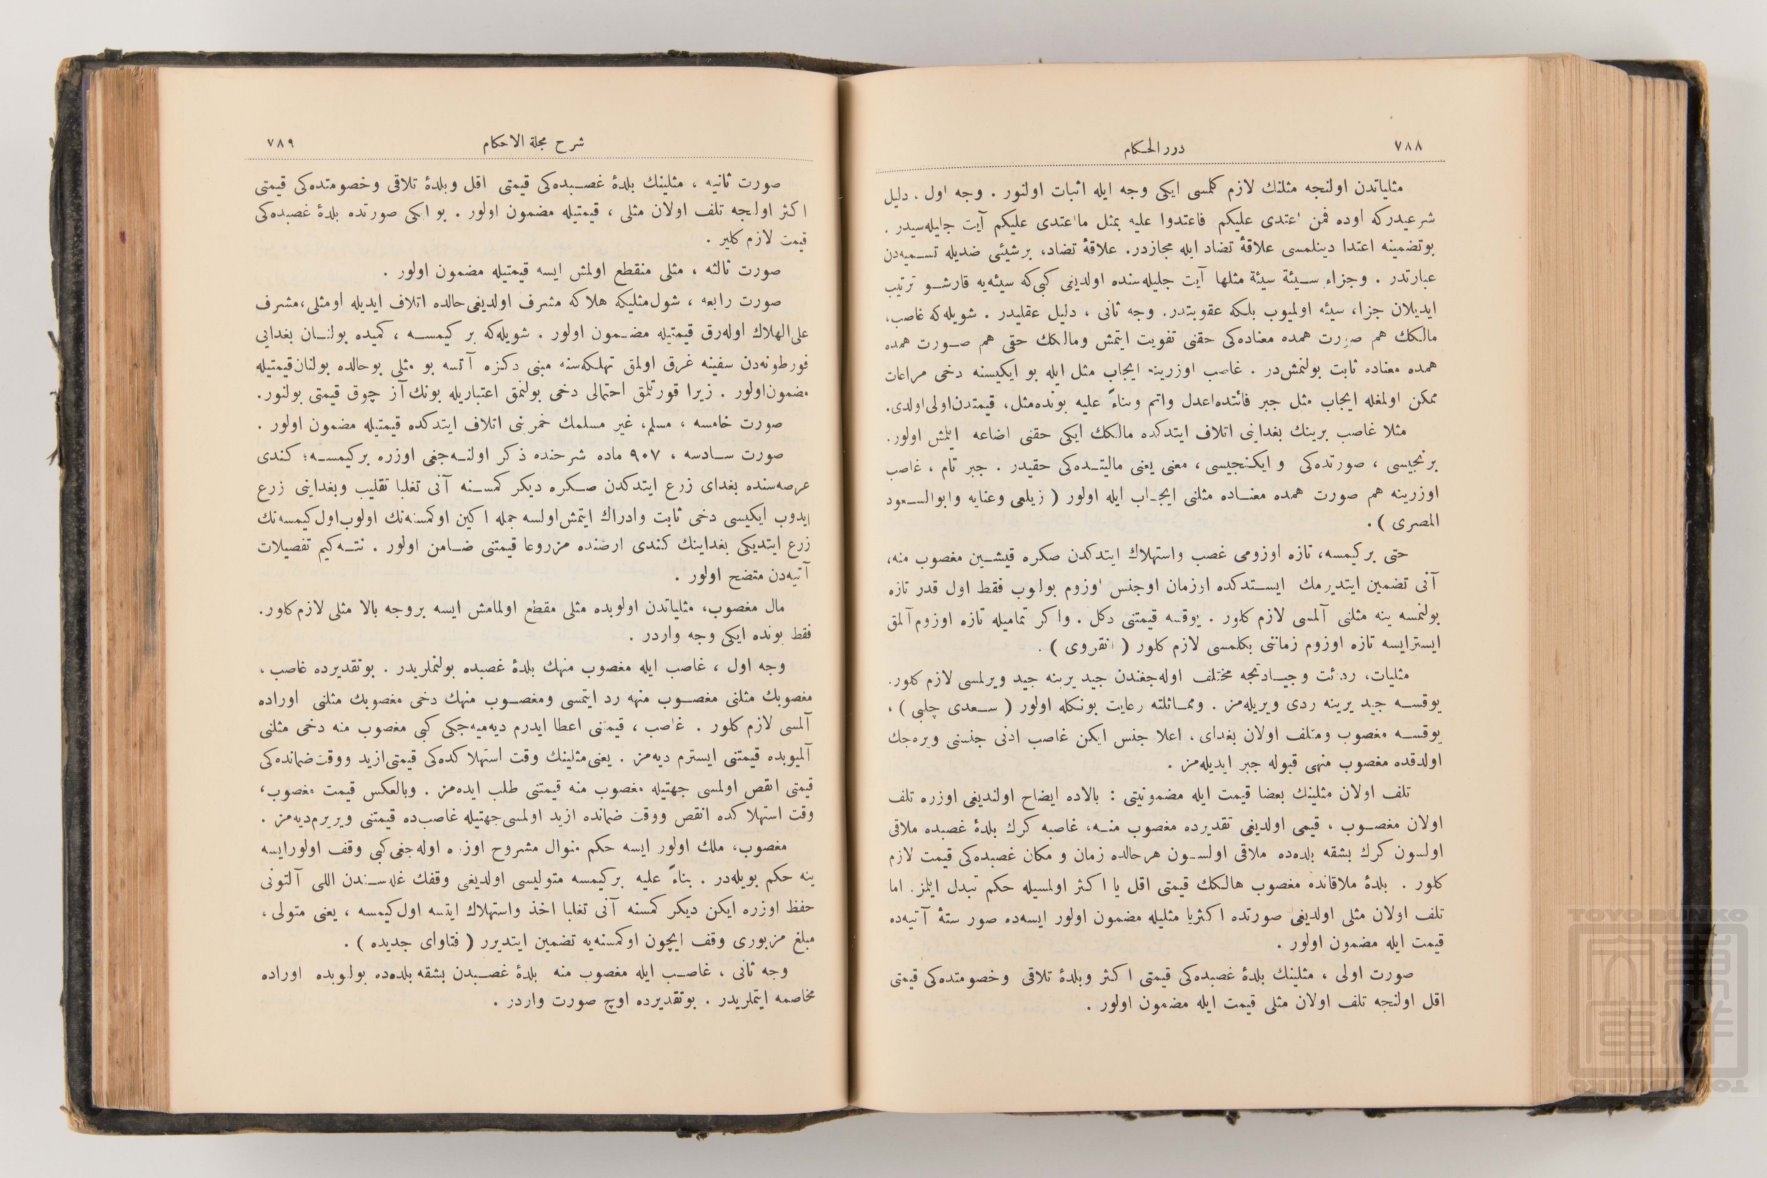 ٧٨٨
درر الحكام
مثلياتدن اولنجه مثلنك لازم كلمسى ايكى وجه ايله اثبات اولنور . وجه اول ، دليل
شرعيدركه اوده فمن اعتدى عليكم فاعتدوا عليه بمثل مااعتدى عليكم آيت جليله‌سيدر .
بوتضمينه اعتدا دينلمسى علاقهٔ تضاد ايله مجازدر. علاقهٔ تضاد، برشيئى ضديله تسميه‌دن
عبارتدر . وجزاء سيئة سيئة مثلها آيت جليله‌سنده اولديغى كبى‌كه سيئه‌يه قارشو ترتيب
ايديلان جزا، سيئه اولميوب بلكه عقوبتدر. وجه ثانى ، دليل عقليدر . شويله‌كه غاصب،
مالكك هم صورت همده معناده‌كى حقنى تفويت ايتمش ومالكك حقى هم صورت همده
همده معناده ثابت بولنمش‌در . غاصب اوزرينه ايجاب مثل ايله بو ايكيسنه دخى مراعات
ممكن اولمغله ايجاب مثل جبر فائتده‌اعدل واتم وبناءً عليه بونده‌مثل، قيمتدن‌اولى‌اولدى.
مثلا غاصب برينك بغداينى اتلاف ايتدكده مالكك ايكى حقنى اضاعه ايتمش اولور.
برنجيسى ، صورتده‌كى و ايكنجيسى، معنى يعنى ماليتده‌كى حقيدر . جبر تام ، غاصب
اوزرينه هم صورت همده معناده مثلنى ايجاب ايله اولور ( زيلعى وعنايه وابوالسعود
المصرى ) .
حتى بركيمسه، تازه اوزومى غصب واستهلاك ايتدكدن صكره قيشين مغصوب منه،
آنى تضمين ايتديرمك ايستدكده اوزمان اوجنس اوزوم بولنوب فقط اول قدر تازه
بولنمسه ينه مثلنى آلمسى لازم كلور . يوقسه قيمتنى دكل . واكر تماميله تازه اوزوم‌آلمق
ايسترايسه تازه اوزوم زماننى بكلمسى لازم كلور ( انقروى ) .
مثليات، ردائت وجيادتجه مختلف اوله‌جغندن جيد يرينه جيد ويرلمسى لازم كلور.
يوقسه جيد يرينه ردى ويريله‌مز . ومماثلته رعايت بونكله اولور ( سعدى چلبى ) ،
يوقسه مغصوب ومتلف اولان بغداى، اعلا جنس ايكن غاصب ادنى جنسنى ويره‌جك
اولدقده مغصوب منهى قبوله جبر ايديله‌مز .
تلف اولان مثلينك بعضا قيمت ايله مضمونيتى : بالاده ايضاح اولنديغى اوزره تلف
اولان مغصوب ، قيمى اولديغى تقديرده مغصوب منه، غاصبه كرك بلدهٔ غصبده ملاقى
اولسون كرك بشقه بلده‌ده ملاقى اولسون هرحالده زمان و مكان غصبده‌كى قيمت لازم
كلور . بلدهٔ ملاقاتده مغصوب هالكك قيمتى اقل يا اكثر اولمسيله حكم تبدل ايتمز. اما
تلف اولان مثلى اولديغى صورتده اكثريا مثليله مضمون اولور ايسه‌ده صور ستهٔ آتيه‌ده
قيمت ايله مضمون اولور .
صورت اولى ، مثلينك بلدهٔ غصبده‌كى قيمتى اكثر وبلدهٔ تلاقى وخصومتده‌كى قيمتى
اقل اولنجه تلف اولان مثلى قيمت ايله مضمون اولور .
شرح مجلة الاحكام
٧٨٩
صورت ثانيه ، مثلينك بلدهٔ غصبده‌كى قيمتى اقل وبلدهٔ تلاقى وخصومتده‌كى قيمتى
اكثر اولنجه تلف اولان مثلى ، قيمتيله مضمون اولور . بو ايكى صورتده بلدهٔ غصبده‌كى
قيمت لازم كلير .
صورت ثالثه ، مثلى منقطع اولمش ايسه قيمتيله مضمون اولور .
صورت رابعه ، شول‌مثليكه هلاكه مشرف اولديغى‌حالده اتلاف ايديله اومثلى،مشرف
على‌الهلاك اوله‌رق قيمتيله مضمون اولور . شويله‌كه بر كيمسه ، كميده بولنان بغدايى
فورطونه‌دن سفينه غرق اولمق تهلكه‌سنه مبنى دكزه آتسه بو مثلى بوحالده بولنان‌قيمتيله
مضمون‌اولور . زيرا قورتلمق احتمالى دخى بولنمق اعتباريله بونك آز چوق قيمتى بولنور.
صورت خامسه ، مسلم، غير مسلمك خمرينى اتلاف ايتدكده قيمتيله مضمون اولور .
صورت سادسه ، ٩٠٧ ماده شرحنده ذكر اولنه‌جغى اوزره بركيمسه؛ كندى
عرصه‌سنده بغداى زرع ايتدكدن صكره ديكر كمسنه آنى تغلبا تقليب وبغداينى زرع
ايدوب ايكيسى دخى ثابت وادراك ايتمش‌اولسه جمله اكين اوكمسنه‌نك اولوب‌اول‌كيمسه‌نك
زرع ايتديكى بغداينك كندى ارضنده مزروعا قيمتنى ضامن اولور . نته‌كيم تفصيلات
آتيه‌دن متضح اولور .
مال مغصوب، مثلياتدن اولوبده مثلى مقطع اولمامش ايسه بروجه بالا مثلى لازم‌كلور.
فقط بونده ايكى وجه واردر .
وجه اول ، غاصب ايله مغصوب منهك بلدهٔ غصبده بولنملريدر . بوتقديرده غاصب ،
مغصوبك مثلنى مغصوب منهه رد ايتمسى ومغصوب منهك دخى مغصوبك مثلنى اوراده
آلمسى لازم كلور . غاصب ، قيمتنى اعطا ايدرم ديه‌ميه‌جكى كبى مغصوب منه دخى مثلنى
آلميوبده قيمتنى ايسترم ديه‌مز . يعنى‌مثلينك وقت استهلاكده‌كى قيمتى‌ازيد ووقت‌ضمانده‌كى
قيمتى انقص اولمسى جهتيله مغصوب منه قيمتنى طلب ايده‌مز . وبالعكس قيمت مغصوب،
وقت استهلاكده انقص ووقت ضمانده ازيد اولمسى‌جهتيله غاصب‌ده قيمتنى ويريرم‌ديه‌مز .
مغصوب، ملك اولور ايسه حكم منوال مشروح اوزره اوله‌جغى‌كبى وقف اولورايسه
ينه حكم بويله‌در . بناءً عليه بركيمسه متوليسى اولديغى وقفك غله‌سندن اللى آلتونى
حفظ اوزره ايكن ديكر كمسنه آنى تغلبا اخذ واستهلاك ايتسه اول‌كيمسه ، يعنى متولى،
مبلغ مزبورى وقف ايچون اوكمسنه‌يه تضمين ايتديرر ( فتاواى جديده ) .
وجه ثانى ، غاصب ايله مغصوب منه بلدهٔ غصبدن بشقه بلده‌ده بولنوبده اوراده
مخاصمه ايتملريدر . بوتقديرده اوچ صورت واردر .
TOYO BUNKO